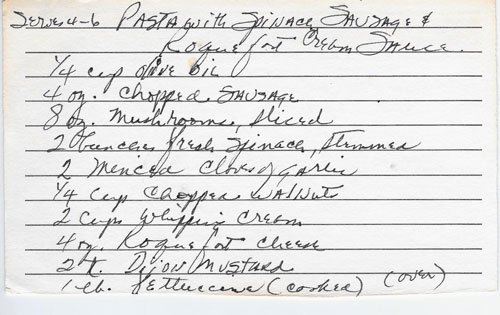 Serves 4-6 Pasta with Spinach, Sausage &
Roquefort Cream Sauce.
1/4 cup olive oil
4 oz. Chopped Sausage
8 oz. Mushrooms, Sliced
2 bunches fresh Spinach, Stemmed
2 Menced Cloves of garlic
1/4 cup Chopped walnuts
2 cups whipping Cream
4 oz. Roquefort Cheese
2 t. Dijon Mustard
1-lb. Fettuccine (cooked) (over)